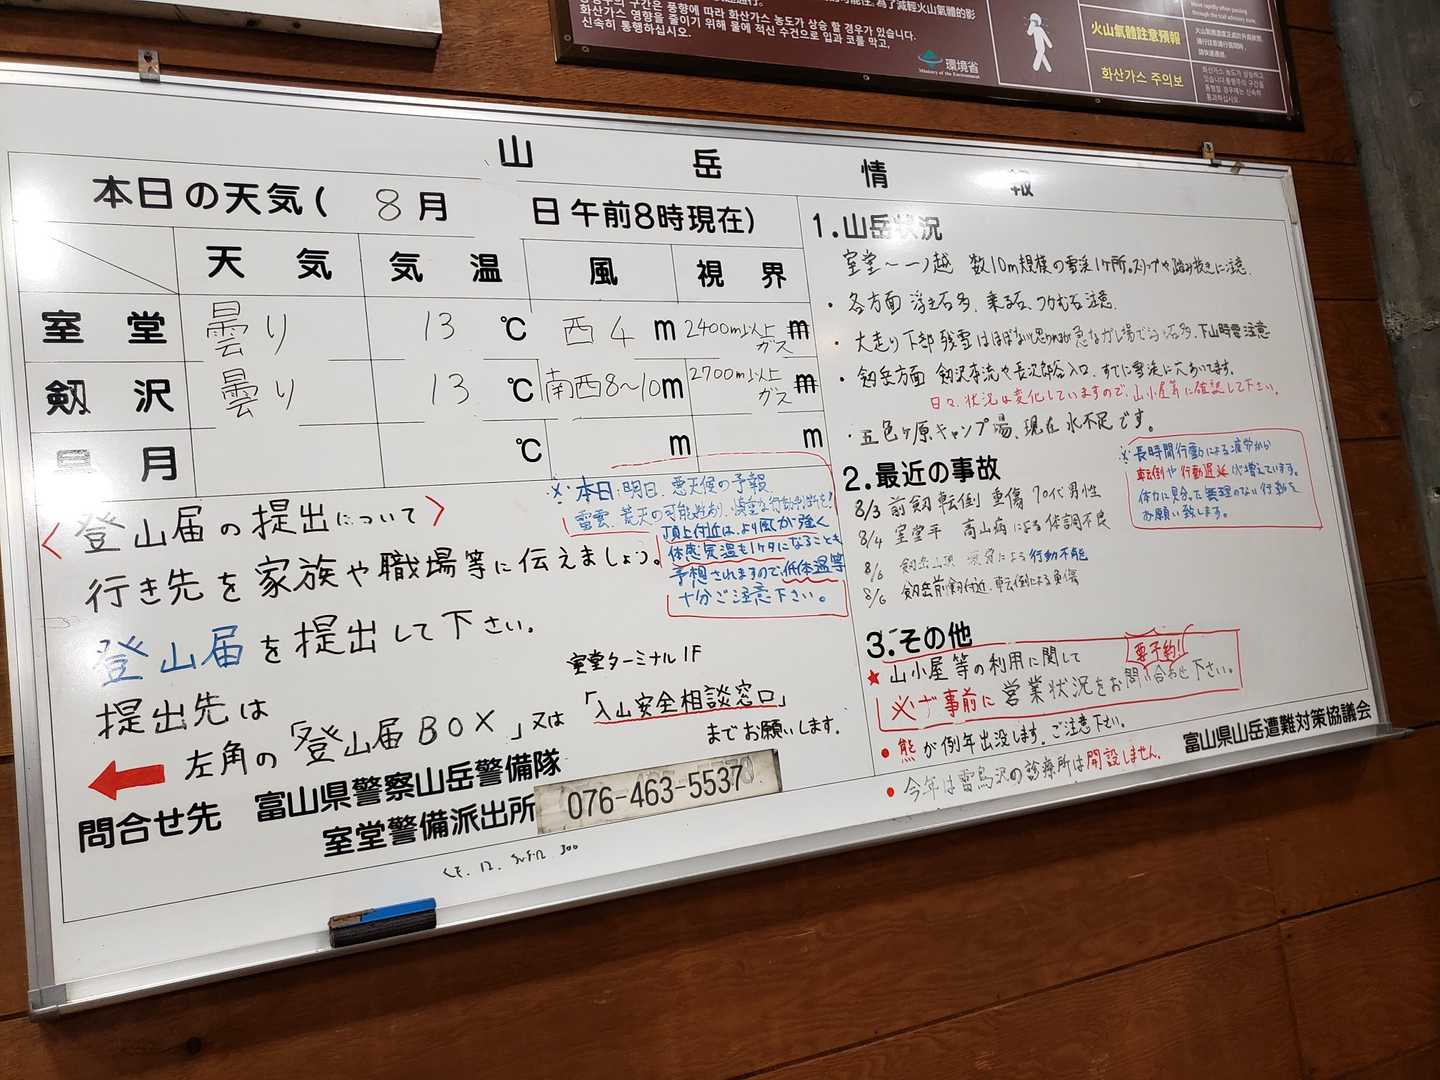 화산가스 영향을 줄이기 위해 물에 적신 수건으로 입과 코를 막고,
신속히 통행하십시오.
環境省
Ministry of the Environment
火山氣體註意預報
화산가스 주의보
山岳情報
本日の天気( 8月 日午前8時現在)
天気 気温 風 視界
室堂 曇り 13℃ 西4m 2400m以上ガス m
剱沢 曇り 13℃ 南西8〜10m 2700m以上ガス m
月 ℃ m m
〈登山届の提出について〉
行き先を家族や職場等に伝えましょう。
登山届を提出して下さい。
提出先は
左角の「登山届BOX」又は
室堂ターミナル1F
「入山安全相談窓口」
までお願いします。
※本日.明日、悪天候の予報
雷雲、荒天の可能性あり、慎重な行動判断を!
頂上付近は、より風が強く
体感気温も1ケタになることも
予想されますので、低体温等
十分ご注意下さい。
問合せ先 富山県警察山岳警備隊
室堂警備派出所
076-463-5537
1.山岳状況
室堂〜一ノ越 数10m規模の雪渓1ヶ所。スリップや踏み抜きに注意.
・各方面 浮き石多、乗る石、つかむ石注意.
・大走り下部残雪はほぼないと思われるが急なガレ場で浮石多、下山時要注意
・剱岳方面 剱沢本流や長次郎谷入口、すでに雪渓に穴あいてます。
日々、状況は変化していますので、山小屋等に確認して下さい。
・五色ヶ原キャンプ場、現在水不足です。
2.最近の事故
8/3 前剱 転倒 重傷 70代男性
8/4 室堂平 高山病による体調不良
8/6 剱岳山頂 疲労による行動不能
8/6 剱岳前剱付近、転倒による負傷
※長時間行動による疲労から
転倒や行動遅延が増えています。
体力に見合った無理のない行動を
お願い致します。
3.その他
★山小屋等の利用に関して
要予約!
必ず事前に営業状況をお問い合わせ下さい。
・熊が例年出没します。ご注意下さい。
・今年は雷鳥沢の診療所は開設しません.
富山県山岳遭難対策協議会